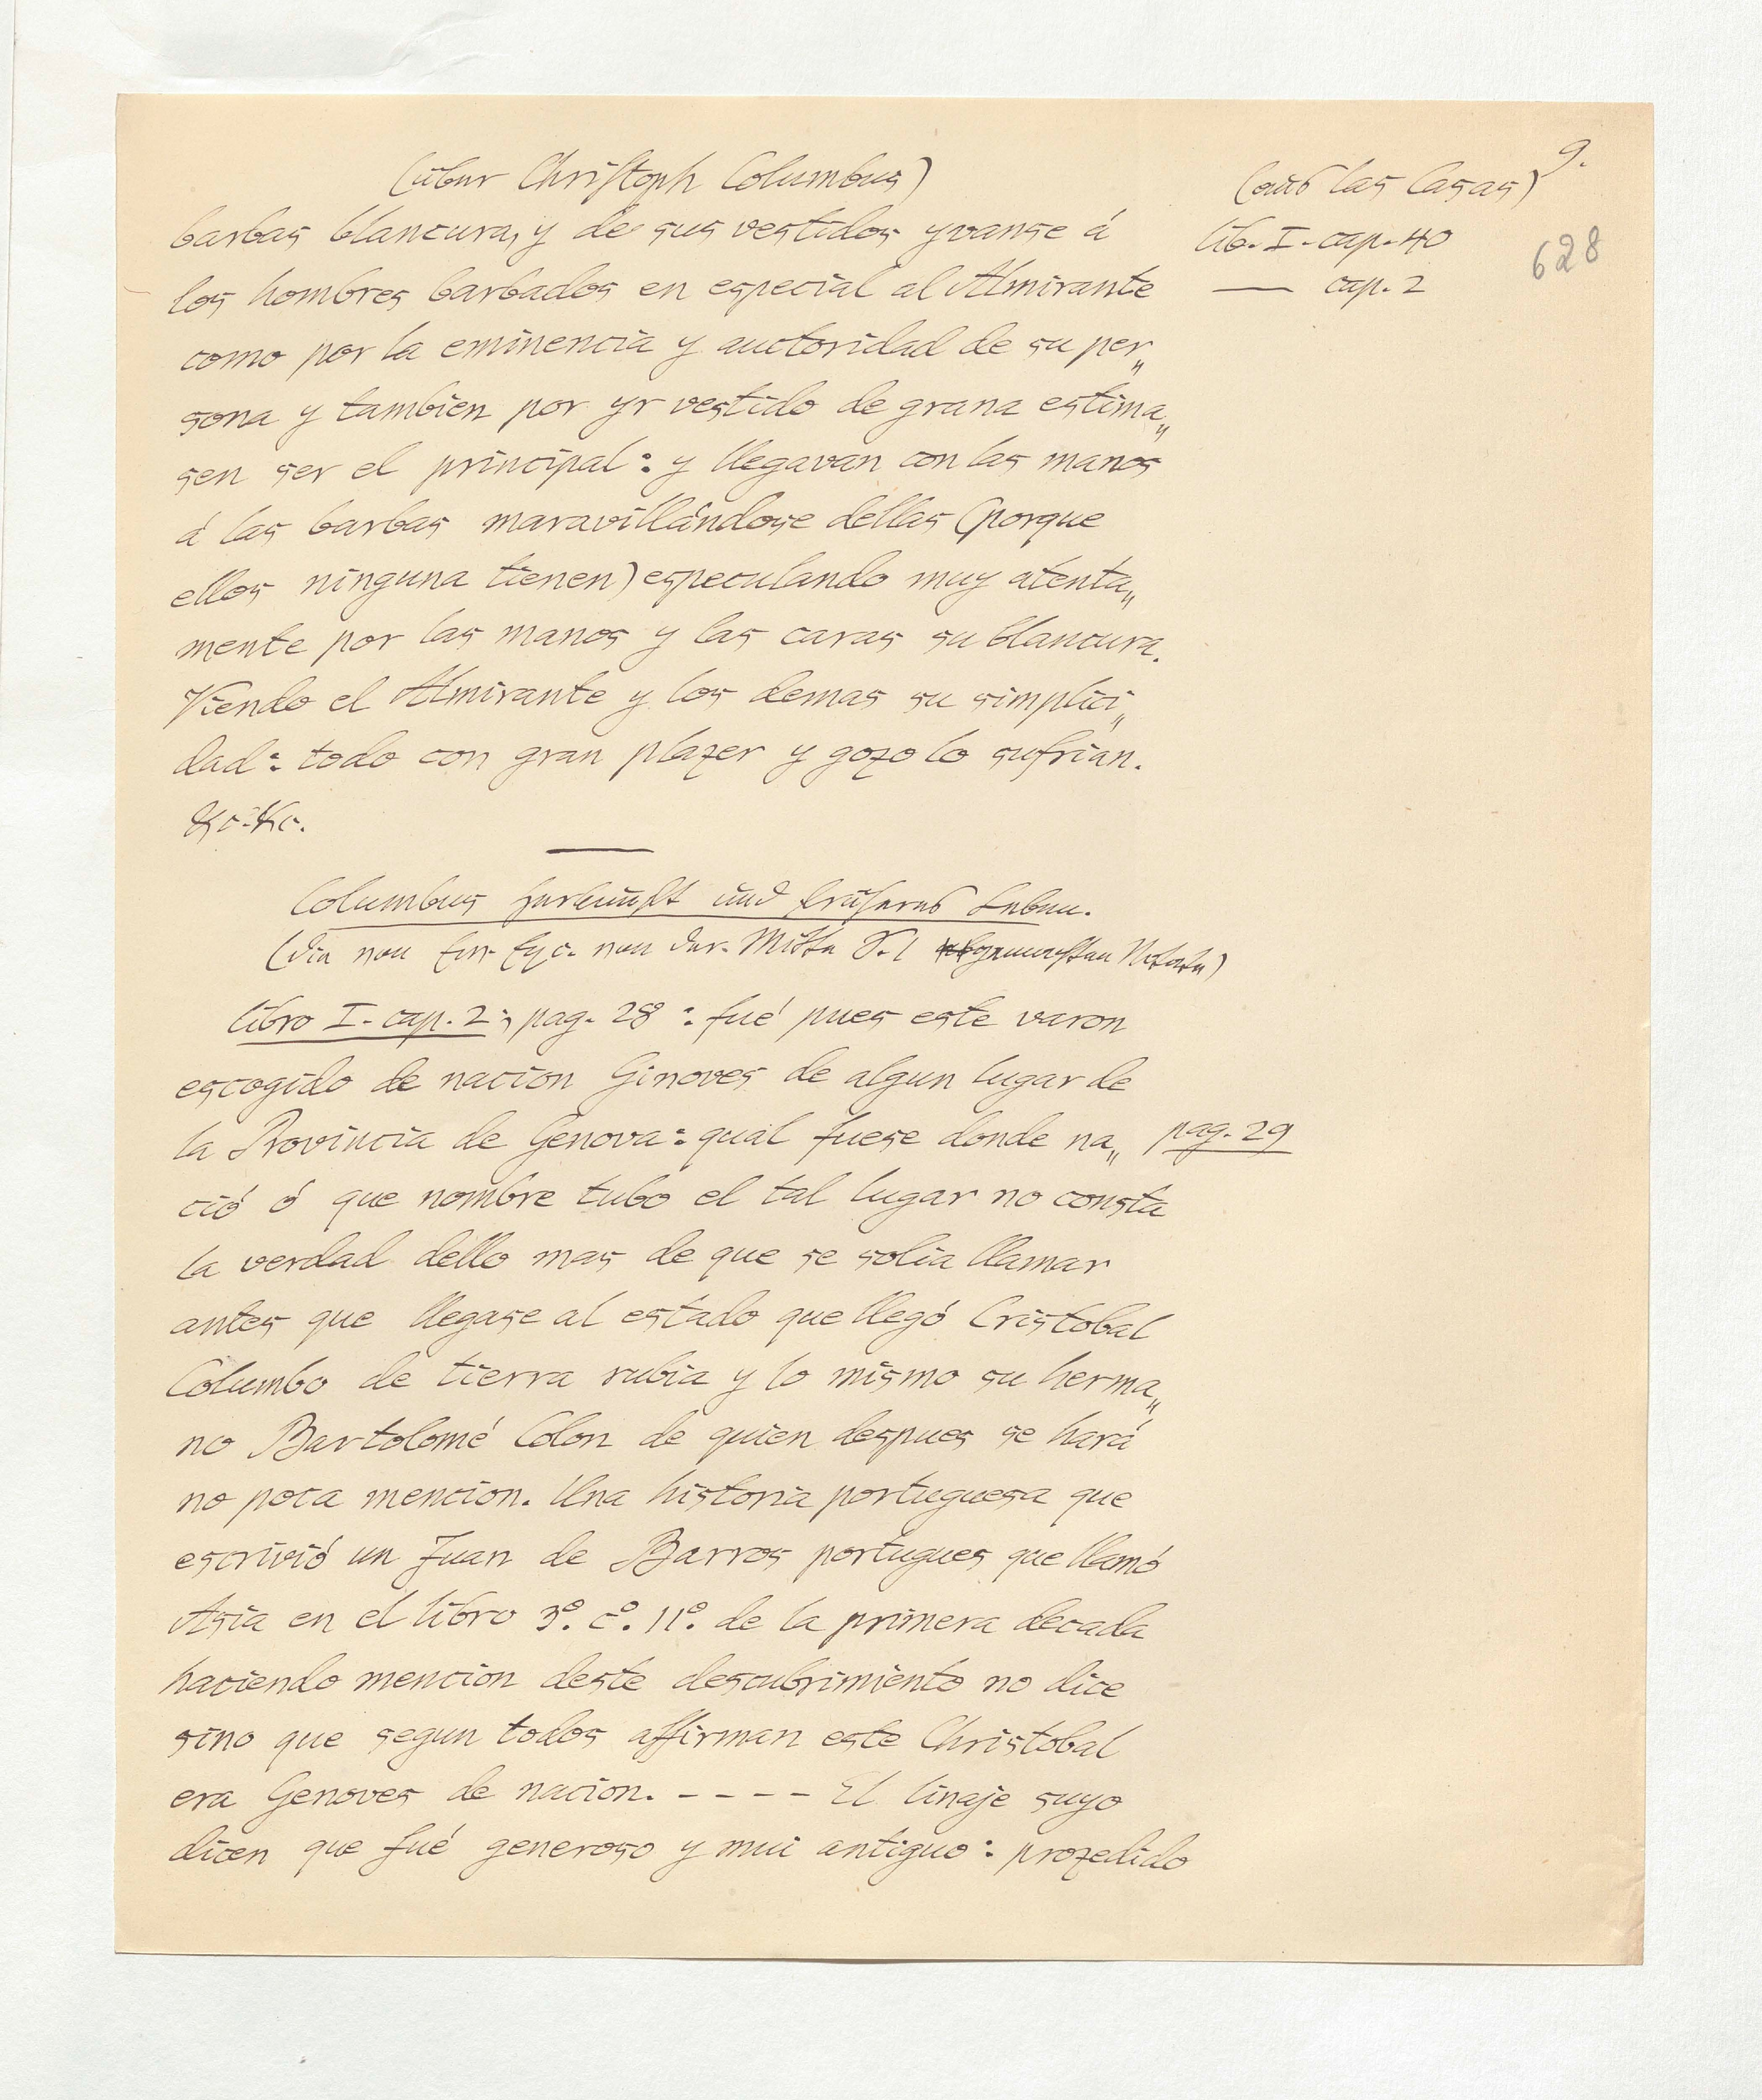 9.
(über Christoph Columbus)
(aus las Casas)
barbas blancura, y de sus vestidos yvanse á
lib. I - cap. 40
628
los hombres barbados en especial al Almirante
— cap. 2
como por la eminencia y auctoridad de su per„
sona y tambien por yr vestido de grana estima„
sen ser el principal: y llegavan con las manos
á las barbas maravillándose dellas (porque
ellos ninguna tienen) especulando muy atenta„
mente por las manos y las caras su blancura.
Viendo el Almirante y los demas su simplici„
dad: todo con gran plazer y gozo lo sufrian.
&c. &c.
Columbus Herkunft und früheres Leben.
(die von Ew. Exc. von der Mitte S. 1 gewünschten Notate)
libro I - cap. 2; pag. 28: fué pues este varon
escogido de nacion Ginoves de algun lugar de
la Provincia de Genova: qual fuese donde na„
pag. 29
ció ó que nombre tubo el tal lugar no consta
la verdad dello mas de que se solia llamar
antes que llegase al estado que llegó Cristobal
Columbo de tierra rubia y lo mismo su herma„
no Bartolomé Colon de quien despues se hará
no poca mencion. Una historia portuguesa que
escrivió un Juan de Barros portugues que llamó
Asia en el libro 3º. cº. 11º. de la primera decada
haciendo mencion deste descubrimiento no dice
sino que segun todos affirman este Christobal
era Genoves de nacion. - - - - El linaje suyo
dicen que fué generoso y mui antiguo: prozedido